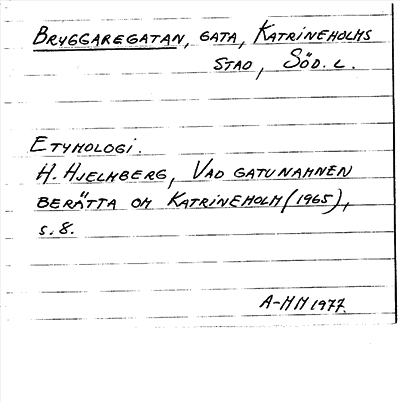 BRYGGAREGATAN, GATA, KATRINEHOLMS
STAD, SÖD. L.
ETYMOLOGI.
H. HJELMBERG, VAD GATUNAMNEN
BERÄTTA OM KATRINEHOLM (1965),
S. 8.
A-MM 1977.